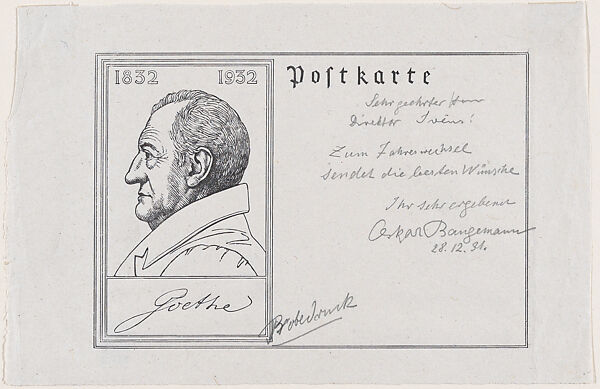 1832 1932
Goethe
Postkarte
Sehr geehrter Herr
Direktor Ivins!
Zum Jahreswechsel
sendet die besten Wünsche
Ihr sehr ergebener
Oskar Bangemann
28.12.31.
Probedruck